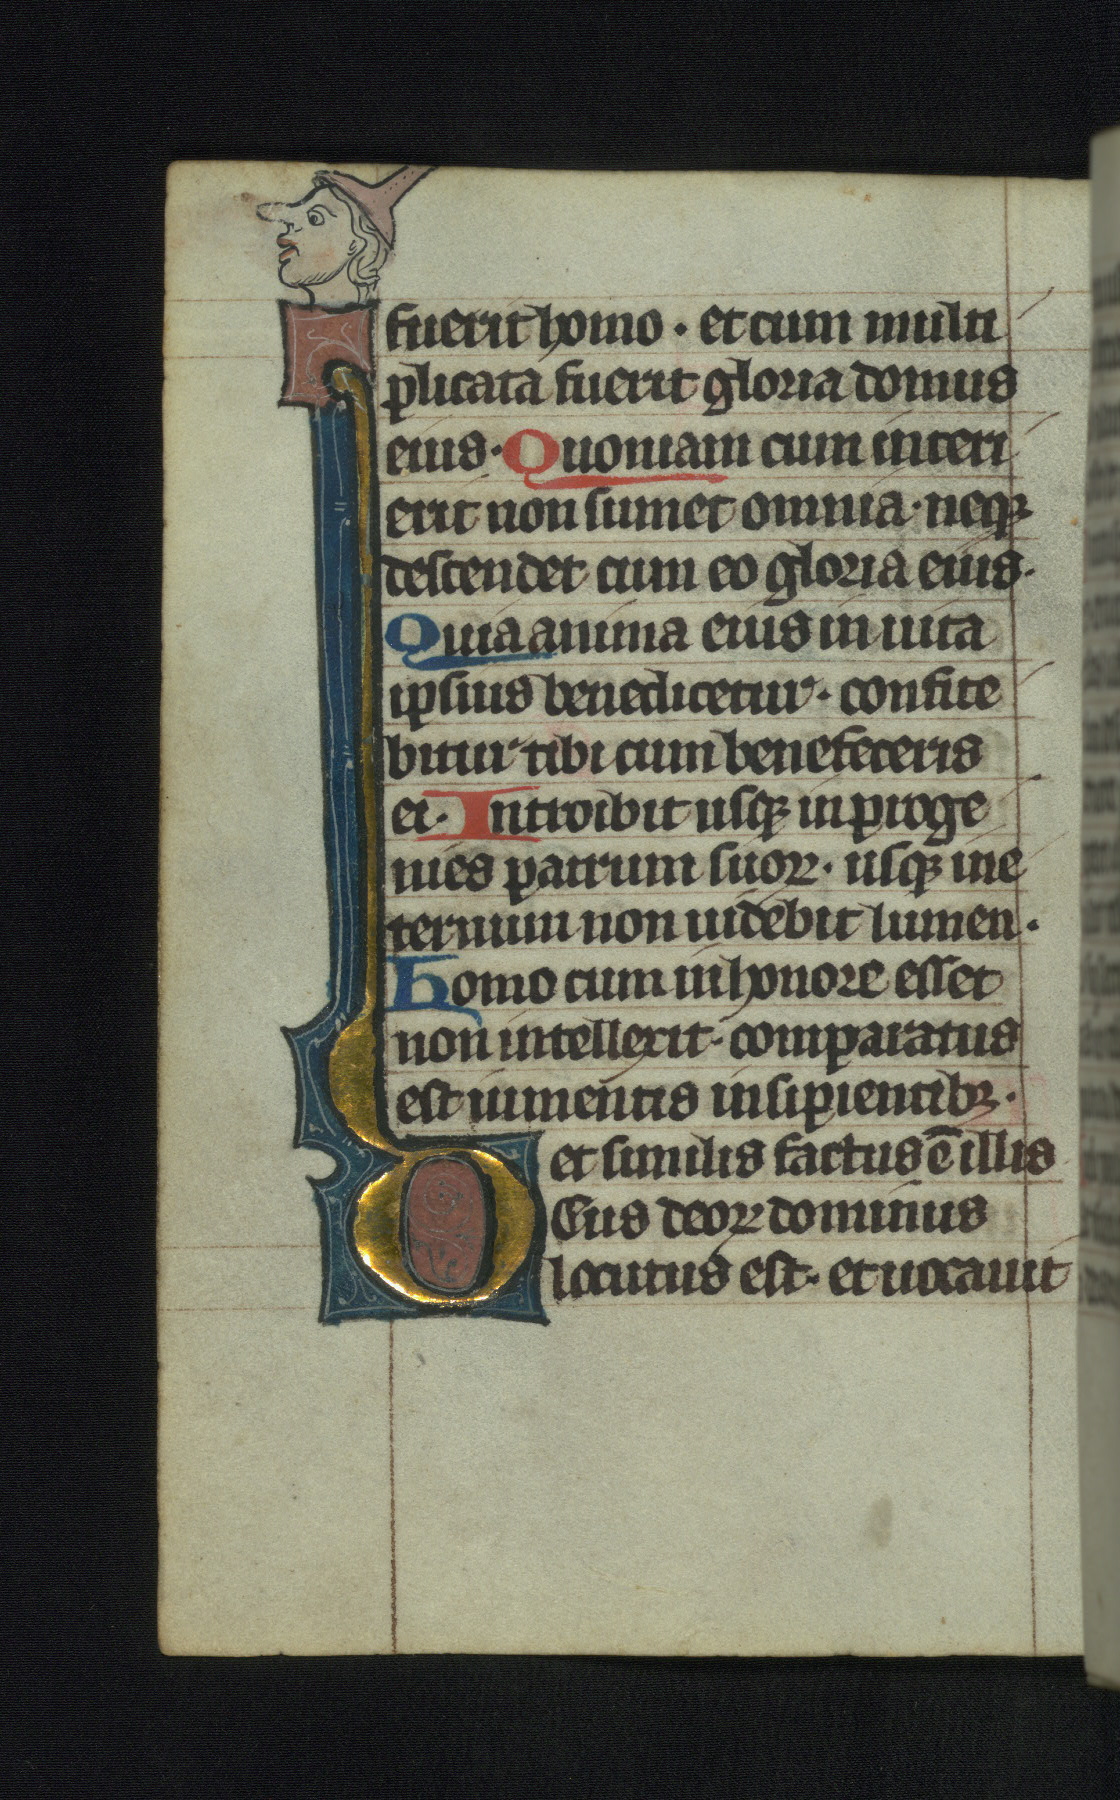 fuerit homo · et cum multi
plicata fuerit gloria domus
eius · Quoniam cum interi
erit non sumet omnia · neqꝫ
descendet cum eo gloria eius ·
Quia anima eius in uita
ipsius benedicetur · confite
bitur tibi cum benefeceris
ei · Introibit usqꝫ in proge
nies patrum suoꝝ · usqꝫ ine
ternum non uidebit lumen ·
Homo cum in honore esset
non intellexit · comparatus
est iumentis insipientibꝫ ·
et similis factus ē illis
Deus deoꝝ dominus
locutus est · et uocauit